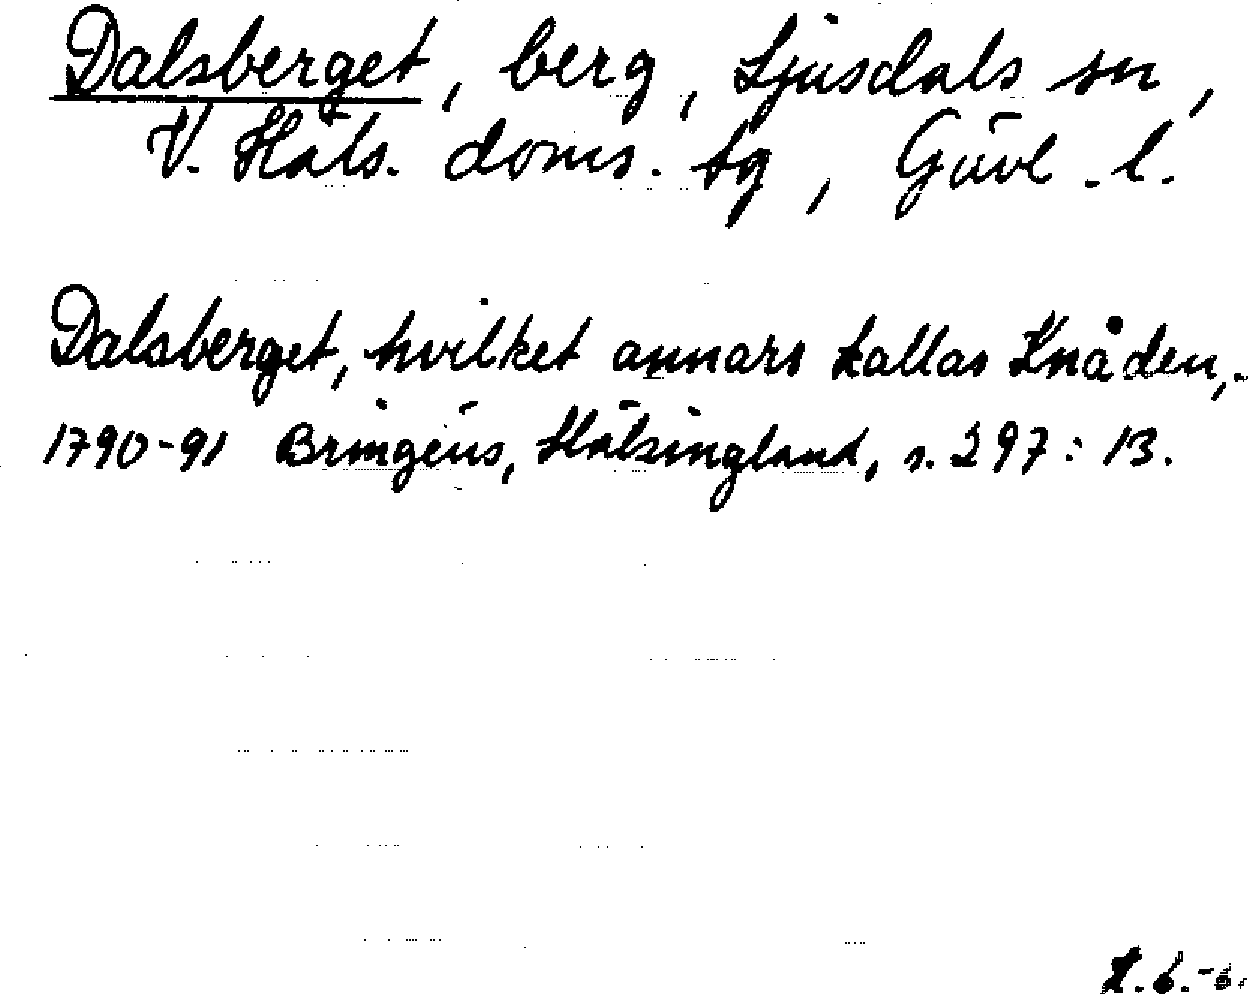 Dalsberget, berg, Ljusdals sn,
V. Häls. doms. tg, Gävl. l.
Dalsberget, hvilket annars kallas Knåden,
1790-91 Bringéus, Hälsingland, s. 297: 13.